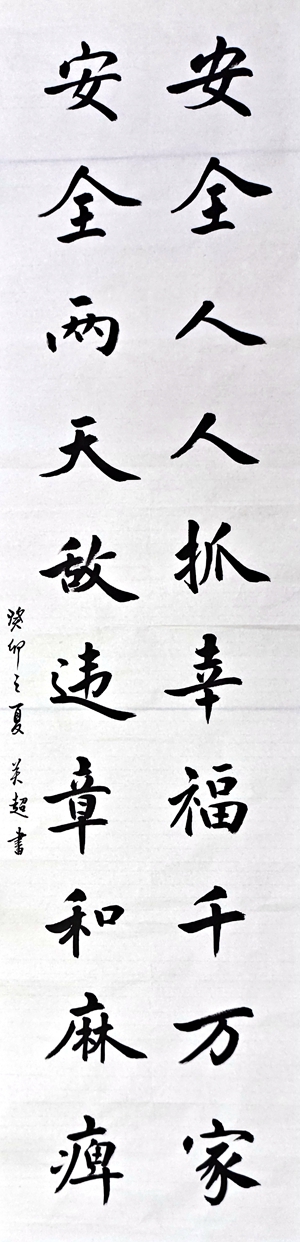 安全人人抓幸福千万家
安全两天敌违章和麻痹
癸卯之夏 吴超书